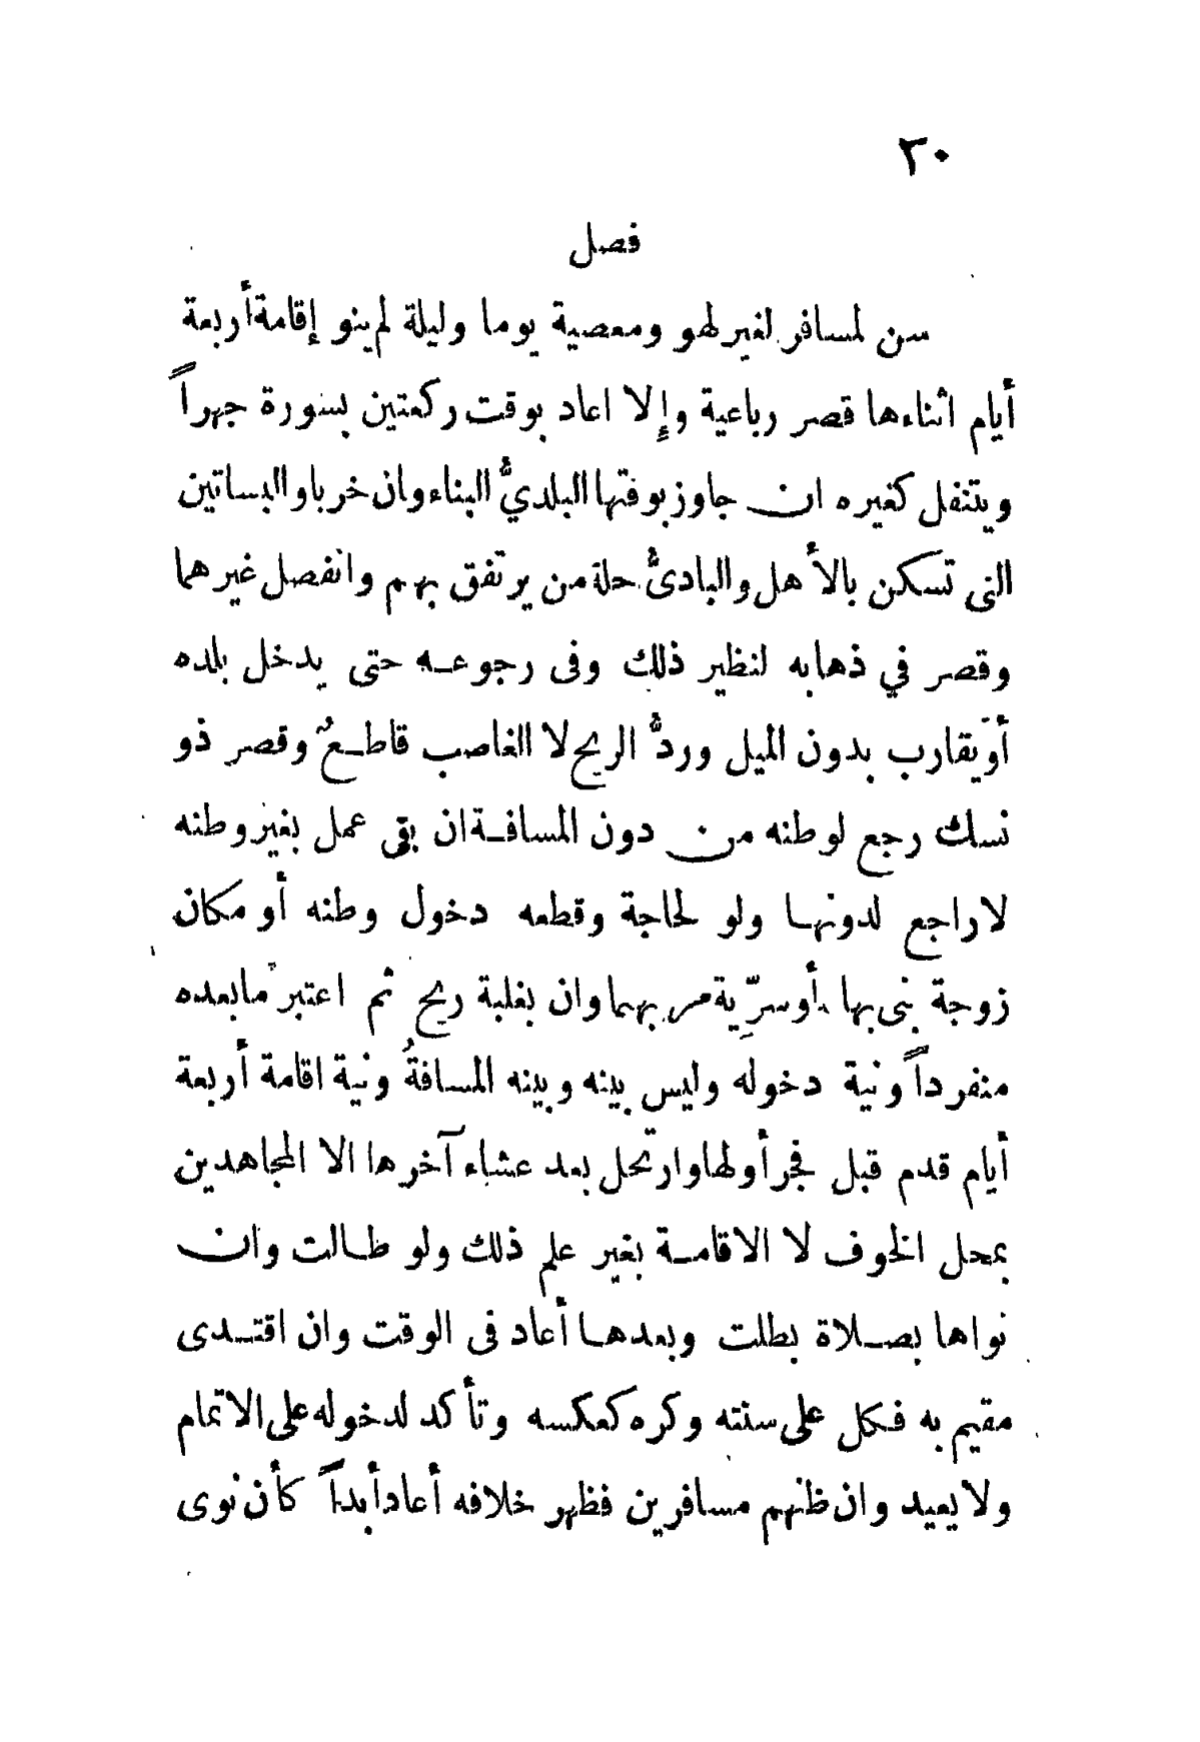 ٣٠
فصل
سن لمسافر لغير لهو ومعصية يوما وليلة لم ينو إقامة أربعة
أيام اثناءها قصر رباعية وإلا اعاد بوقت ركعتين بسورة جهراً
ويتنفل كغيره ان جاوز بوقتها البلديُّ البناء وان خربا والبساتين
التى تسكن بالأهل والبادىُّ حلة من يرتفق بهم وانفصل غيرهما
وقصر في ذهابه لنظير ذلك وفى رجوعه حتى يدخل بلده
أو يقارب بدون الميل وردُّ الريح لا الغاصب قاطعٌ وقصر ذو
نسك رجع لوطنه من دون المسافة ان بقى عمل بغير وطنه
لا راجع لدونها ولو لحاجة وقطعه دخول وطنه أو مكان
زوجة بنى بها أو سرِّية مر بهما وان بغلبة ريح ثم اعتبر ما بعده
منفرداً ونية دخوله وليس بينه وبينه المسافةُ ونية اقامة أربعة
أيام قدم قبل فجر أولها وارتحل بعد عشاء آخرها الا المجاهدين
بمحل الخوف لا الاقامة بغير علم ذلك ولو طالت وان
نواها بصلاة بطلت وبعدها أعاد فى الوقت وان اقتدى
مقيم به فكل على سنته وكره كعكسه وتأكد لدخوله على الاتمام
ولا يعيد وان ظنهم مسافرين فظهر خلافه أعاد أبداً كأن نوى